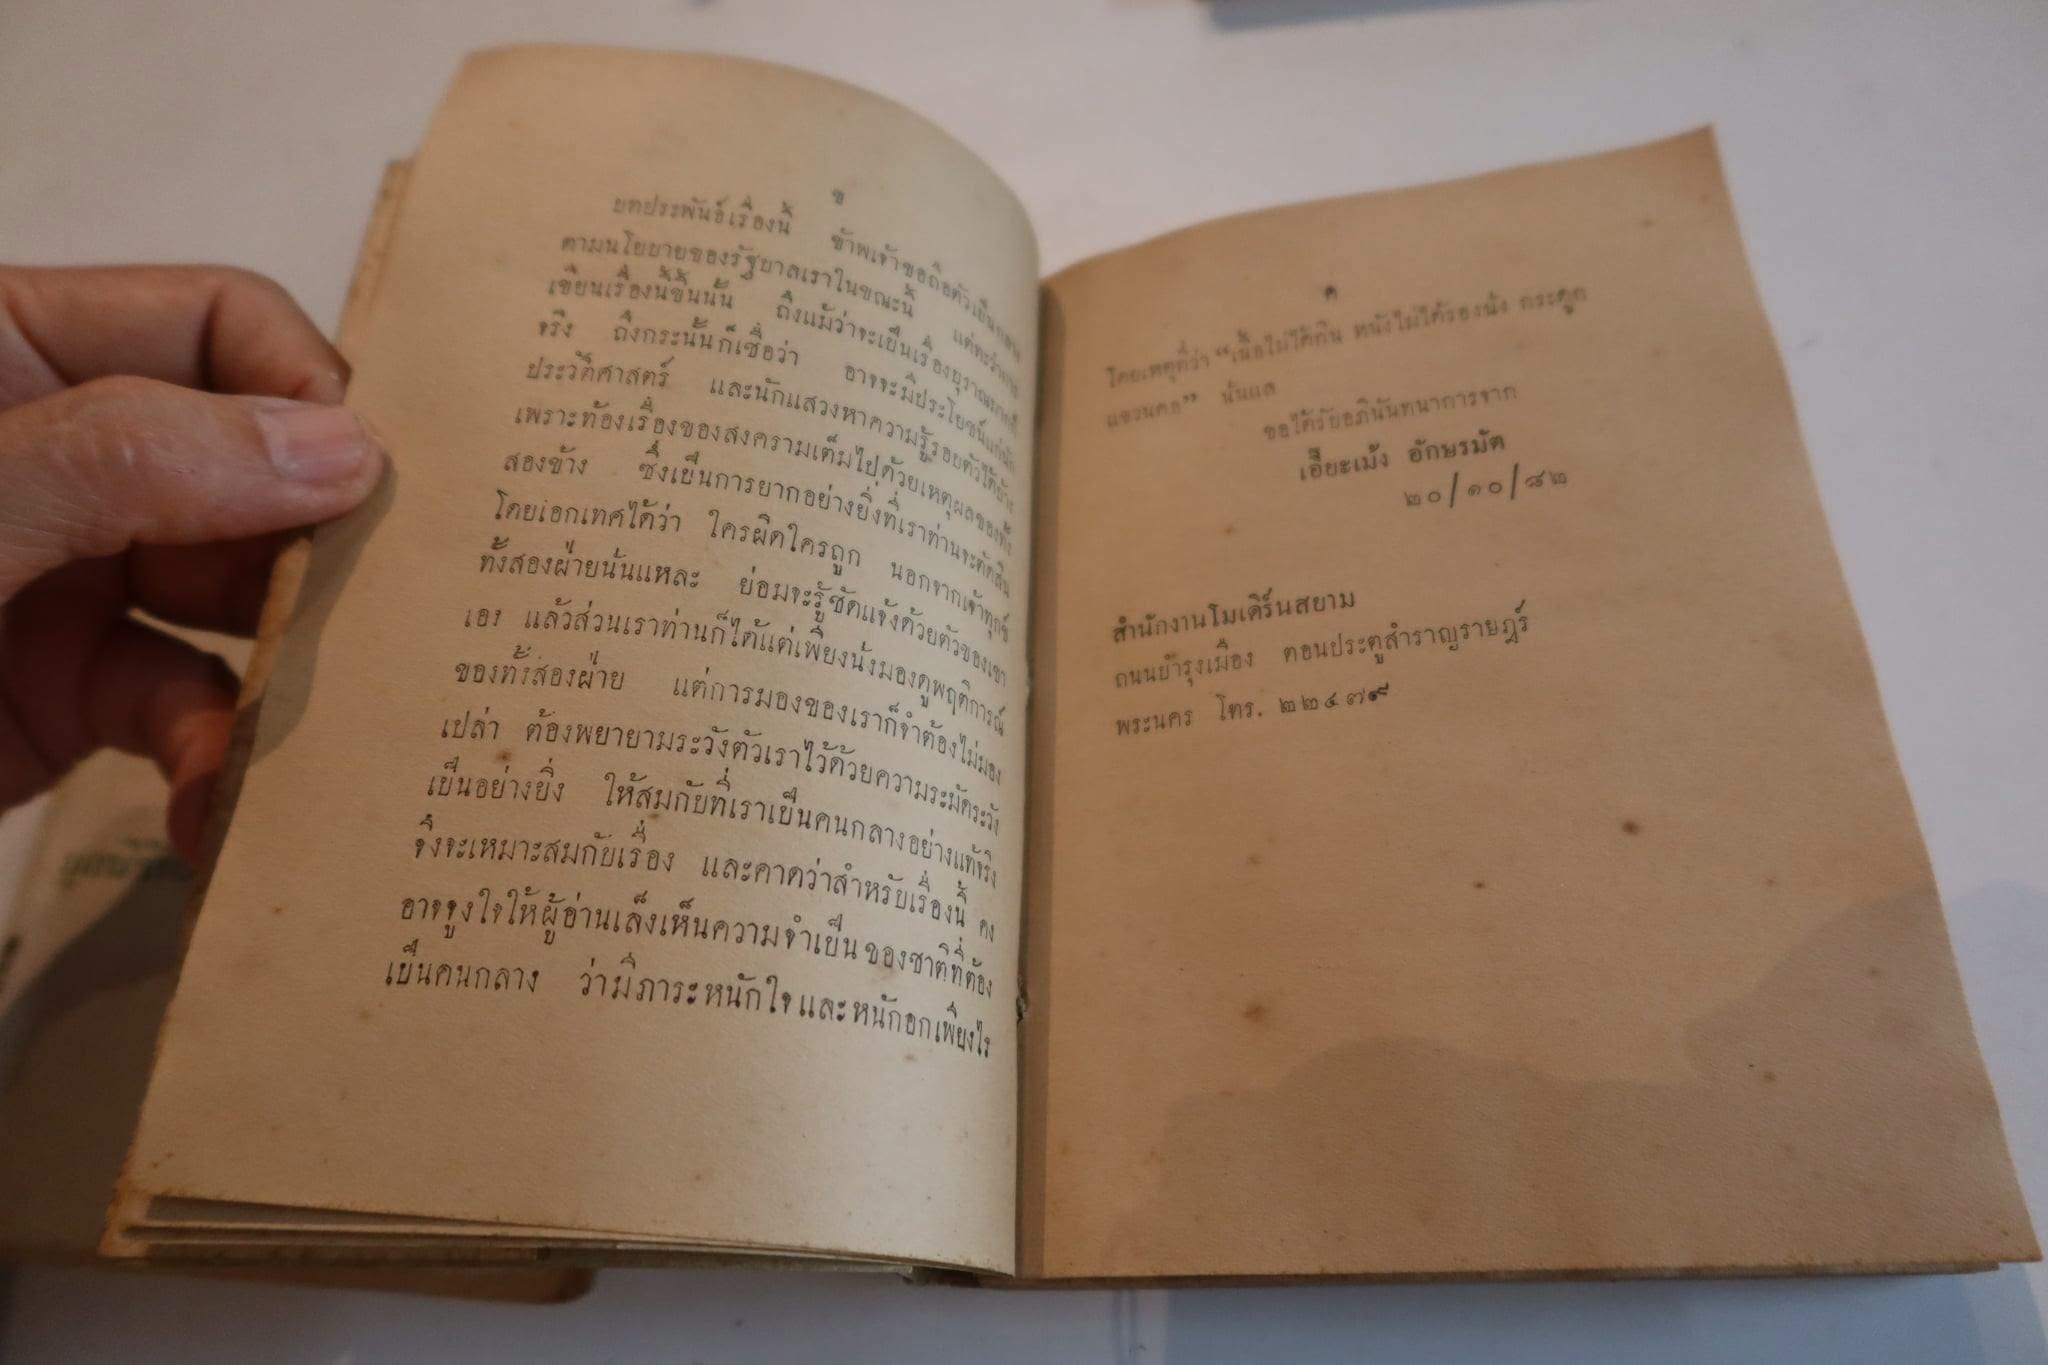 ข
บทประพันธ์เรื่องนี้ ข้าพเจ้าขอถือตัวเป็นกลาง
ตามนโยบายของรัฐบาลเราในขณะนี้ แต่ระหว่าง
เขียนเรื่องนี้ขึ้นนั้น ถึงแม้ว่าจะเป็นเรื่องบุราณ
จริง ถึงกระนั้นก็เชื่อว่า อาจจะมีประโยชน์แก่นัก
ประวัติศาสตร์ และนักแสวงหาความรู้รอบตัวได้บ้าง
เพราะท้องเรื่องของสงครามเต็มไปด้วยเหตุผลของทั้ง
สองข้าง ซึ่งเป็นการยากอย่างยิ่งที่เราท่านจะตัดสิน
โดยเอกเทศได้ว่า ใครผิดใครถูก นอกจากเจ้าทุกข์
ทั้งสองฝ่ายนั่นแหละ ย่อมจะรู้ชัดแจ้งด้วยตัวของเขา
เอง แล้วส่วนเราท่านก็ได้แต่เพียงนั่งมองดูพฤติการณ์
ของทั้งสองฝ่าย แต่การมองของเราก็จำต้องไม่มอง
เปล่า ต้องพยายามระวังตัวเราไว้ด้วยความระมัดระวัง
เป็นอย่างยิ่ง ให้สมกับที่เราเป็นคนกลางอย่างแท้จริง
จึงจะเหมาะสมกับเรื่อง และคาดว่าสำหรับเรื่องนี้ คง
อาจจูงใจให้ผู้อ่านเล็งเห็นความจำเป็นของชาติที่ต้อง
เป็นคนกลาง ว่ามีภาระหนักใจและหนักอกเพียงไร
ค
โดยเหตุที่ว่า “เนื้อไม่ได้กิน หนังไม่ได้รองนั่ง กระดูก
แขวนคอ” นั่นแล
ขอได้รับอภินันทนาการจาก
เอี๊ยะเม้ง อักษรมัต
๒๐/๑๐/๘๒
สำนักงานโมเดิร์นสยาม
ถนนบำรุงเมือง ตอนประตูสำราญราษฎร์
พระนคร โทร. ๒๒๔๗๙